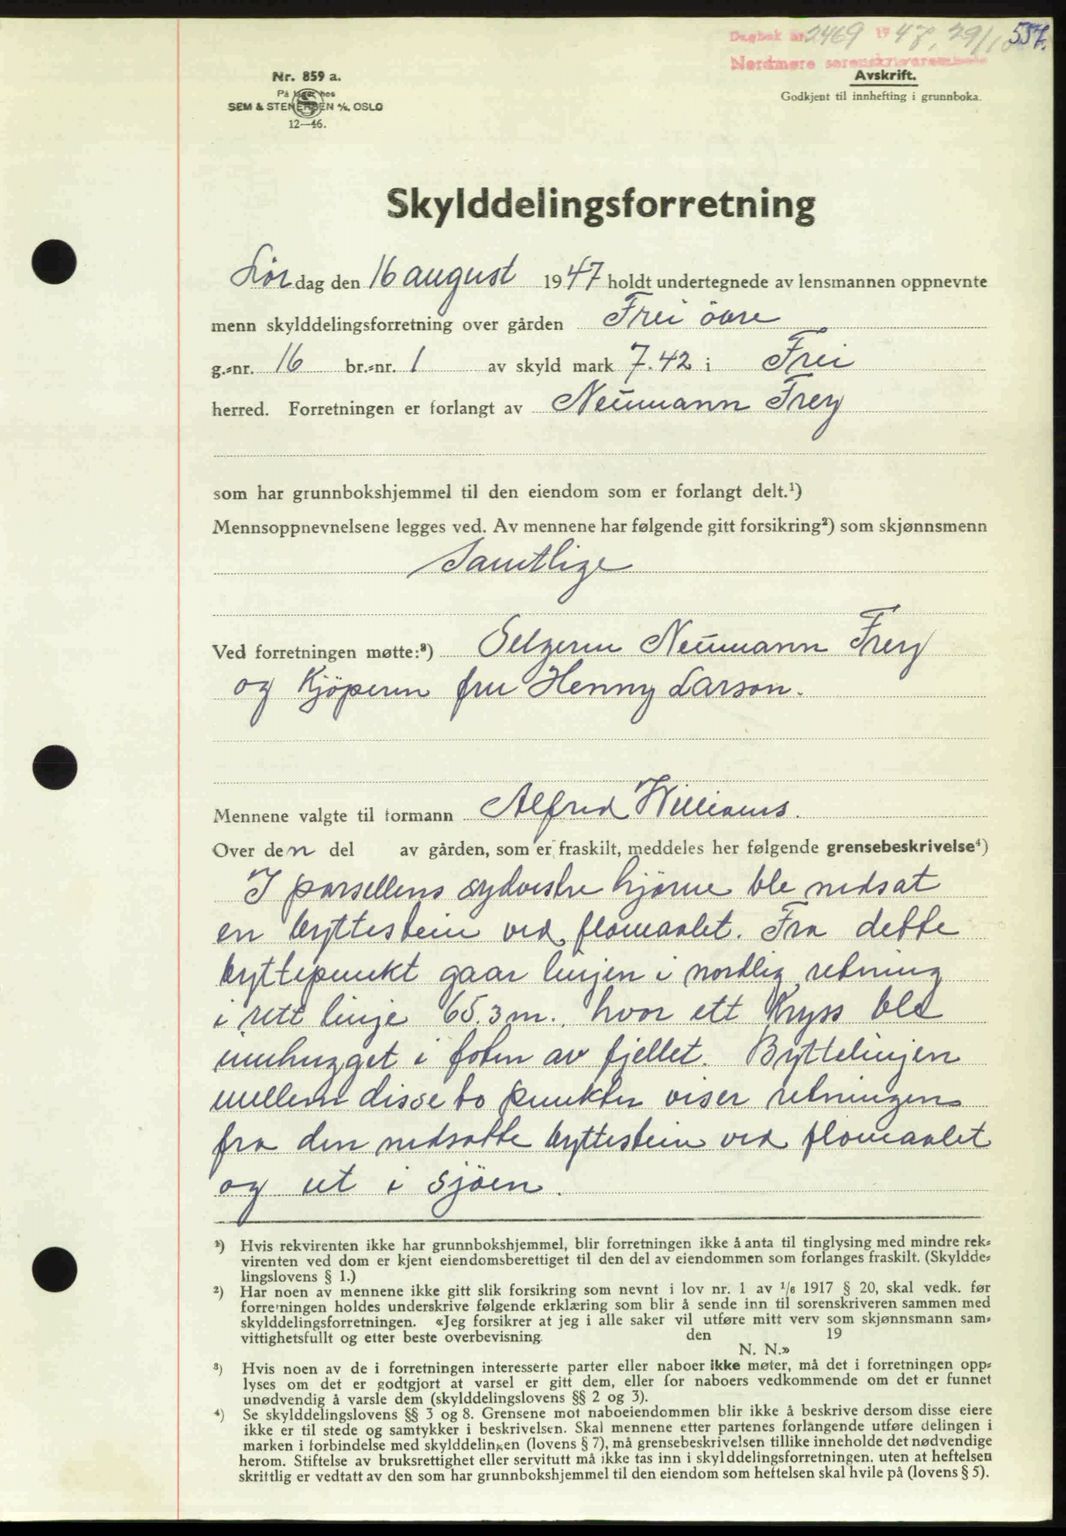 Dagbok nr. 2469 1947, 29/10 557.
Nordmøre sorenskriverembede
Avskrift.
Godkjent til innhefting i grunnboka.
Nr. 859 a.
På lager hos
SEM & STENERSEN A/S, OSLO
12—46.
Skylddelingsforretning
Lør dag den 16 august 1947 holdt undertegnede av lensmannen oppnevnte
menn skylddelingsforretning over gården Frei öure
g.-nr. 16 br.-nr. 1 av skyld mark 7.42 i Frei
herred. Forretningen er forlangt av Neumann Frey
som har grunnbokshjemmel til den eiendom som er forlangt delt.¹)
Mennsoppnevnelsene legges ved. Av mennene har følgende gitt forsikring²) som skjønnsmenn
Samtlige
Ved forretningen møtte:³) Selgeren Neumann Frey
og Kjöperen fru Henny Larson.
Mennene valgte til formann Alfred Williams.
Over den del av gården, som er fraskilt, meddeles her følgende grensebeskrivelse⁴)
I parsellens sydvestre hjörne ble nedsat
en byttestein ved flomaalet. Fra dette
byttepunkt gaar linjen i nordlig retning
i rett linje 65.3 m. hvor ett Kryss ble
innhugget i foten av fjellet. Byttelinjen
mellem disse to punkter viser retningen
fra den nedsatte byttestein ved flomaalet
og ut i sjöen.
¹) Hvis rekvirenten ikke har grunnbokshjemmel, blir forretningen ikke å anta til tinglysing med mindre rek-
virenten ved dom er kjent eiendomsberettiget til den del av eiendommen som forlanges fraskilt. (Skyldde-
lingslovens § 1.)
²) Har noen av mennene ikke gitt slik forsikring som nevnt i lov nr. 1 av 1/6 1917 § 20, skal vedk. før
forretningen holdes underskrive følgende erklæring som blir å sende inn til sorenskriveren sammen med
skylddelingsforretningen. «Jeg forsikrer at jeg i alle saker vil utføre mitt verv som skjønnsmann sam-
vittighetsfullt og etter beste overbevisning. den 19
N. N.»
³) Hvis noen av de i forretningen interesserte parter eller naboer ikke møter, må det i forretningen opp-
lyses om det er godtgjort at varsel er gitt dem, eller for naboers vedkommende om det er funnet
unødvendig å varsle dem (skylddelingslovens §§ 2 og 3).
⁴) Se skylddelingslovens §§ 3 og 8. Grensene mot naboeiendommen blir ikke å beskrive dersom disse eiere
ikke er til stede og samtykker i beskrivelsen. Skal mennene etter partenes forlangende utføre delingen i
marken i forbindelse med skylddelingen (lovens § 7), må grensebeskrivelsen tillike inneholde det nødvendige
herom. Stiftelse av bruksrettighet eller servitutt må ikke tas inn i skylddelingsforretningen. uten at heftelsen
skriftlig er vedtatt av den som har grunnbokshjemmel til den eiendom som heftelsen skal hvile på (lovens § 5).